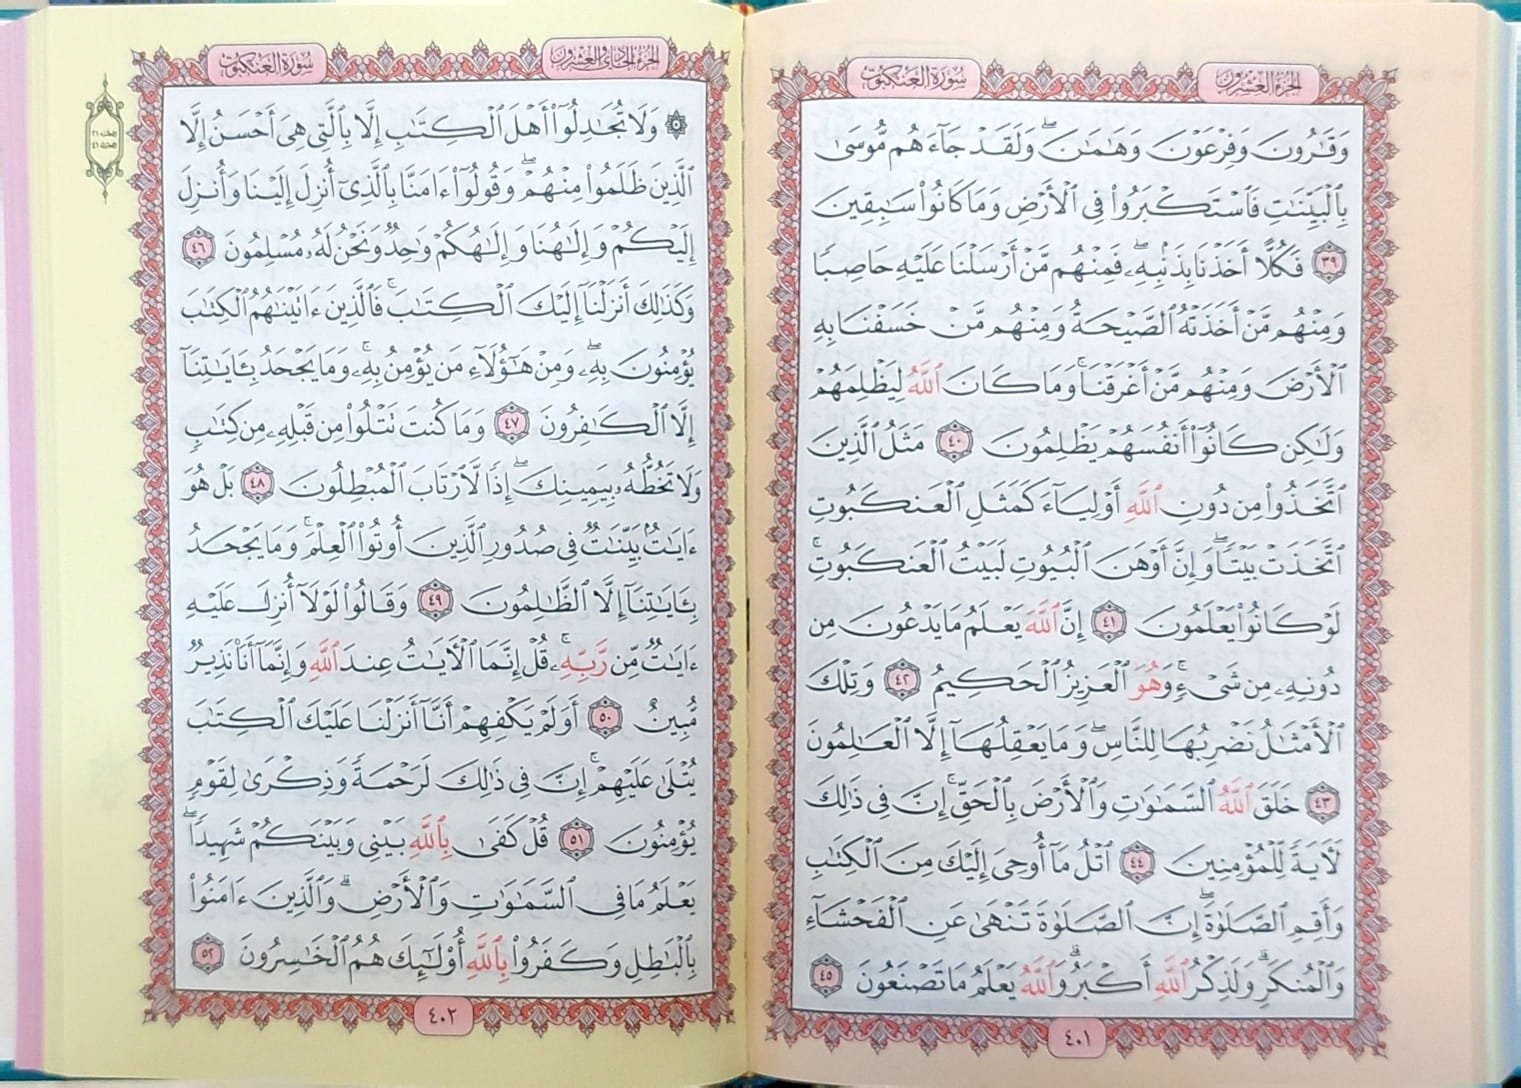 سورة العنكبوت
الجزء العشرون
وَقَٰرُونَ وَفِرْعَوْنَ وَهَٰمَٰنَۖ وَلَقَدْ جَآءَهُم مُّوسَىٰ
بِٱلْبَيِّنَٰتِ فَٱسْتَكْبَرُوا۟ فِى ٱلْأَرْضِ وَمَا كَانُوا۟ سَٰبِقِينَ
٣٩ فَكُلًّا أَخَذْنَا بِذَنۢبِهِۦۖ فَمِنْهُم مَّنْ أَرْسَلْنَا عَلَيْهِ حَاصِبًا
وَمِنْهُم مَّنْ أَخَذَتْهُ ٱلصَّيْحَةُ وَمِنْهُم مَّنْ خَسَفْنَا بِهِ
ٱلْأَرْضَ وَمِنْهُم مَّنْ أَغْرَقْنَاۚ وَمَا كَانَ ٱللَّهُ لِيَظْلِمَهُمْ
وَلَٰكِن كَانُوٓا۟ أَنفُسَهُمْ يَظْلِمُونَ ٤٠ مَثَلُ ٱلَّذِينَ
ٱتَّخَذُوا۟ مِن دُونِ ٱللَّهِ أَوْلِيَآءَ كَمَثَلِ ٱلْعَنكَبُوتِ
ٱتَّخَذَتْ بَيْتًاۖ وَإِنَّ أَوْهَنَ ٱلْبُيُوتِ لَبَيْتُ ٱلْعَنكَبُوتِۚ
لَوْ كَانُوا۟ يَعْلَمُونَ ٤١ إِنَّ ٱللَّهَ يَعْلَمُ مَا يَدْعُونَ مِن
دُونِهِۦ مِن شَىْءٍۚ وَهُوَ ٱلْعَزِيزُ ٱلْحَكِيمُ ٤٢ وَتِلْكَ
ٱلْأَمْثَٰلُ نَضْرِبُهَا لِلنَّاسِۖ وَمَا يَعْقِلُهَآ إِلَّا ٱلْعَٰلِمُونَ
٤٣ خَلَقَ ٱللَّهُ ٱلسَّمَٰوَٰتِ وَٱلْأَرْضَ بِٱلْحَقِّۚ إِنَّ فِى ذَٰلِكَ
لَءَايَةً لِّلْمُؤْمِنِينَ ٤٤ ٱتْلُ مَآ أُوحِىَ إِلَيْكَ مِنَ ٱلْكِتَٰبِ
وَأَقِمِ ٱلصَّلَوٰةَۖ إِنَّ ٱلصَّلَوٰةَ تَنْهَىٰ عَنِ ٱلْفَحْشَآءِ
وَٱلْمُنكَرِۗ وَلَذِكْرُ ٱللَّهِ أَكْبَرُۗ وَٱللَّهُ يَعْلَمُ مَا تَصْنَعُونَ ٤٥
٤٠١
سورة العنكبوت
الجزء الحادي والعشرون
۞ وَلَا تُجَٰدِلُوٓا۟ أَهْلَ ٱلْكِتَٰبِ إِلَّا بِٱلَّتِى هِىَ أَحْسَنُ إِلَّا
ٱلَّذِينَ ظَلَمُوا۟ مِنْهُمْۖ وَقُولُوٓا۟ ءَامَنَّا بِٱلَّذِىٓ أُنزِلَ إِلَيْنَا وَأُنزِلَ
إِلَيْكُمْ وَإِلَٰهُنَا وَإِلَٰهُكُمْ وَٰحِدٌ وَنَحْنُ لَهُۥ مُسْلِمُونَ ٤٦
وَكَذَٰلِكَ أَنزَلْنَآ إِلَيْكَ ٱلْكِتَٰبَۚ فَٱلَّذِينَ ءَاتَيْنَٰهُمُ ٱلْكِتَٰبَ
يُؤْمِنُونَ بِهِۦۖ وَمِنْ هَٰٓؤُلَآءِ مَن يُؤْمِنُ بِهِۦۚ وَمَا يَجْحَدُ بِـَٔايَٰتِنَآ
إِلَّا ٱلْكَٰفِرُونَ ٤٧ وَمَا كُنتَ تَتْلُوا۟ مِن قَبْلِهِۦ مِن كِتَٰبٍ
وَلَا تَخُطُّهُۥ بِيَمِينِكَۖ إِذًا لَّٱرْتَابَ ٱلْمُبْطِلُونَ ٤٨ بَلْ هُوَ
ءَايَٰتٌۢ بَيِّنَٰتٌ فِى صُدُورِ ٱلَّذِينَ أُوتُوا۟ ٱلْعِلْمَۚ وَمَا يَجْحَدُ
بِـَٔايَٰتِنَآ إِلَّا ٱلظَّٰلِمُونَ ٤٩ وَقَالُوا۟ لَوْلَآ أُنزِلَ عَلَيْهِ
ءَايَٰتٌ مِّن رَّبِّهِۦۚ قُلْ إِنَّمَا ٱلْءَايَٰتُ عِندَ ٱللَّهِ وَإِنَّمَآ أَنَا۠ نَذِيرٌ
مُّبِينٌ ٥٠ أَوَلَمْ يَكْفِهِمْ أَنَّآ أَنزَلْنَا عَلَيْكَ ٱلْكِتَٰبَ
يُتْلَىٰ عَلَيْهِمْۚ إِنَّ فِى ذَٰلِكَ لَرَحْمَةً وَذِكْرَىٰ لِقَوْمٍ
يُؤْمِنُونَ ٥١ قُلْ كَفَىٰ بِٱللَّهِ بَيْنِى وَبَيْنَكُمْ شَهِيدًاۖ
يَعْلَمُ مَا فِى ٱلسَّمَٰوَٰتِ وَٱلْأَرْضِۗ وَٱلَّذِينَ ءَامَنُوا۟
بِٱلْبَٰطِلِ وَكَفَرُوا۟ بِٱللَّهِ أُو۟لَٰٓئِكَ هُمُ ٱلْخَٰسِرُونَ ٥٢
٤٠٢